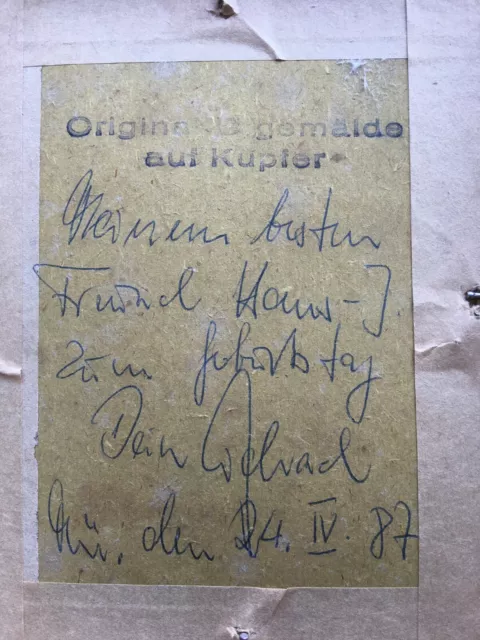 Original gemälde
auf Kupfer
Meinem besten
Freund Hans-J.
zum Geburtstag
Dein
Mü, den 24. IV. 87